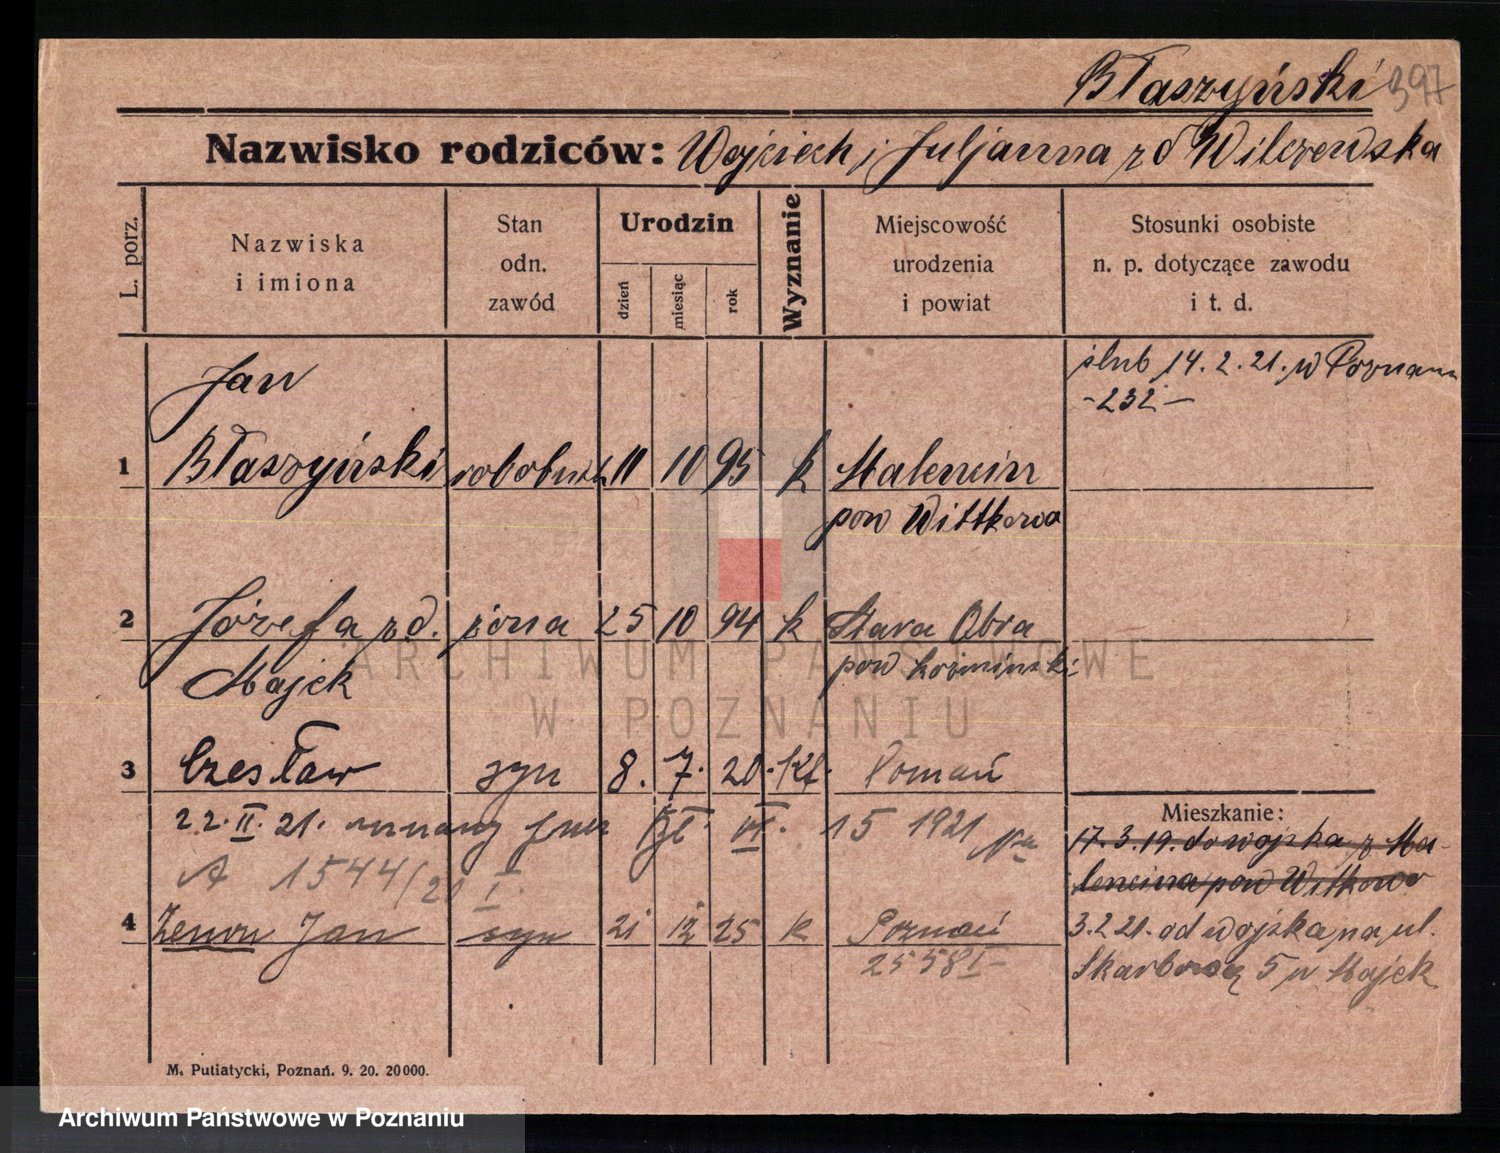 Błaszyński 397
Nazwisko rodziców: Wojciech i Juljanna z d Wilczewska
L. porz.
Nazwiska
i imiona
Stan
odn.
zawód
Urodzin
dzień
miesiąc
rok
Wyznanie
Miejscowość
urodzenia
i powiat
Stosunki osobiste
n. p. dotyczące zawodu
i t. d.
ślub 14. 2. 21. w Poznaniu
-232-
Jan
1 Błaszyński robotnik 11 10 95 k Malenin
pow Wittkowo
2 Józefa z d. żona 25 10 94 k Stara Obra
Majek pow koźmiński
3 Czesław syn 8. 7. 20. kt. Poznań
22. II. 21. VI. 15 1921
A 1544/20 I.
4 Zenon Jan syn 21 12 25 k Poznań
2558 I-
Mieszkanie:
17. 3. 19. do wojska z Ma-
lencina pow Witkowo
3. 2. 21. od wojska na ul.
Skarbową 5 w Majek
M. Putiatycki, Poznań. 9. 20. 20000.
ARCHIWUM PAŃSTWOWE
W POZNANIU
Archiwum Państwowe w Poznaniu